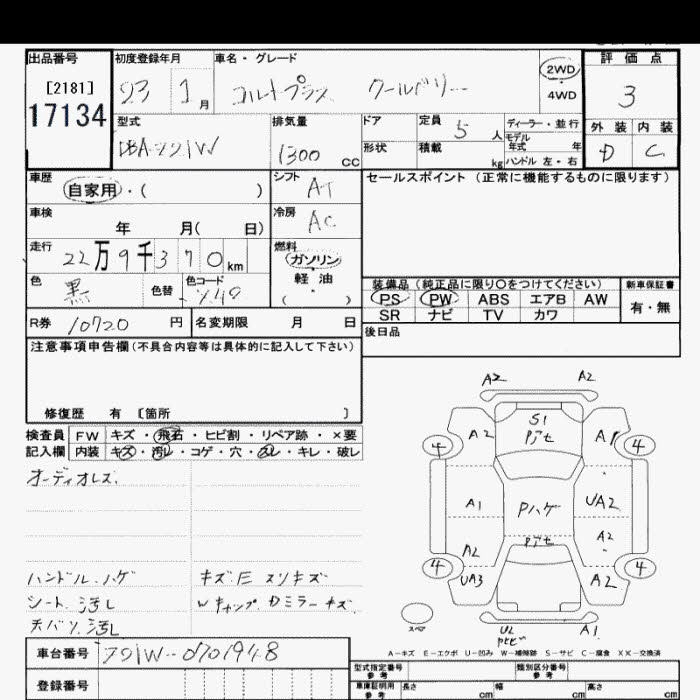 出品番号 初度登録年月 車名・グレード 評価点
[2181] 23 1月 コルトプラス クールベリー 2WD 4WD 3
17134
型式 排気量 ドア 定員 5人 ディーラー・並行 外装 内装
DBA-Z21W 1300cc 形状 積載 kg モデル年式 年 D C
ハンドル 左・右
車歴 シフト セールスポイント(正常に機能するものに限ります)
自家用・( ) AT
車検 冷房
年 月( 日) AC
走行 燃料
22万9千370km ガソリン・軽油
色 色替 色コード ( )
黒
装備品(純正品に限り○をつけてください) 新車保証書
PS PW ABS エアB AW 有・無
SR ナビ TV カワ
R券 10720円 名変期限 月 日
後日品
注意事項申告欄(不具合内容等は具体的に記入して下さい)
修復歴 有 〔箇所 〕
検査員 FW キズ・飛石・ヒビ割・リペア跡・×要
記入欄 内装 キズ・汚レ・コゲ・穴・スレ・キレ・破レ
オーディオレス
ハンドル.ハゲ キズE スリキズ
シート.汚レ Wキャップ.Dミラーキズ
天バリ.汚レ
A2 A2
S1
Pアセ
A2 A1
4 4
A1 Pハゲ UA2
Pアセ A2
A2
4 UA3 A2 4
スペア U2 A1
Pヒビ
A-キズ E-エクボ U-凹み W-補修跡 S-サビ C-腐食 XX-交換済
車台番号 Z21W-0701948
登録番号
型式指定番号 参考 類別区分番号 参考
車庫証明用 参考 長さ cm 幅 cm 高さ cm